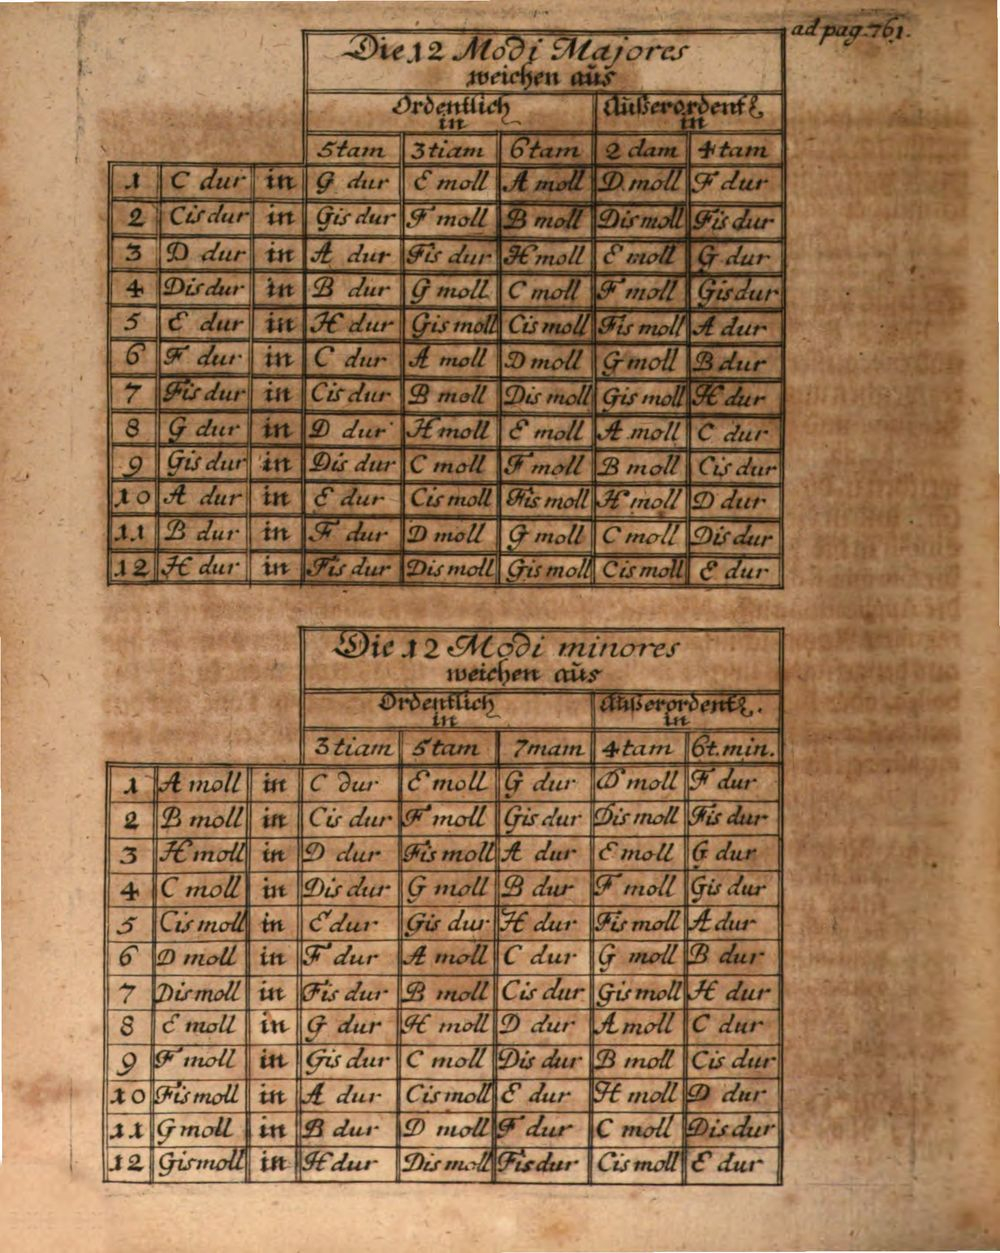 ad pag. 761.
Die 12 Modi Majores
weichen aus
Ordentlich Außerordentl.
in in
5tam 3tiam 6tam 2dam 4tam
1 C dur in G dur E moll A moll D. moll F dur
2 Cis dur in Gis dur F moll B moll Dis moll Fis dur
3 D dur in A dur Fis dur H moll E moll G dur
4 Dis dur in B dur G moll C moll F moll Gis dur
5 E dur in H dur Gis moll Cis moll Fis moll A dur
6 F dur in C dur A moll D moll G moll B dur
7 Fis dur in Cis dur B moll Dis moll Gis moll H dur
8 G dur in D dur H moll E moll A moll C dur
9 Gis dur in Dis dur C moll F moll B moll Cis dur
10 A dur in E dur Cis moll Fis moll H moll D dur
11 B dur in F dur D moll G moll C moll Dis dur
12 H dur in Fis dur Dis moll Gis moll Cis moll E dur
Die 12 Modi minores
weichen aus
Ordentlich Außerordentl.
in in
3tiam 5tam 7mam 4tam 6t. min.
1 A moll in C dur E moll G dur D moll F dur
2 B moll in Cis dur F moll Gis dur Dis moll Fis dur
3 H moll in D dur Fis moll A dur E moll G dur
4 C moll in Dis dur G moll B dur F moll Gis dur
5 Cis moll in E dur Gis dur H dur Fis moll A dur
6 D moll in F dur A moll C dur G moll B dur
7 Dis moll in Fis dur B moll Cis dur Gis moll H dur
8 E moll in G dur H moll D dur A moll C dur
9 F moll in Gis dur C moll Dis dur B moll Cis dur
10 Fis moll in A dur Cis moll E dur H moll D dur
11 G moll in B dur D moll F dur C moll Dis dur
12 Gis moll in H dur Dis moll Fis dur Cis moll E dur